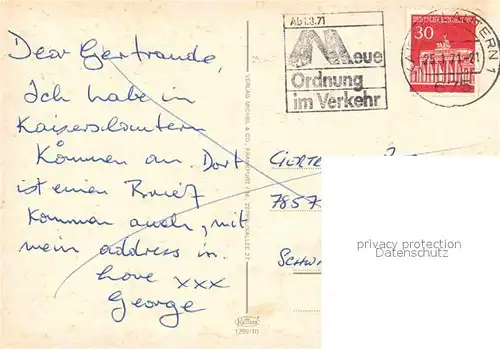 Dear Gertraude,
Ich habe in
Kaiserslautern
Kommen an. Dort
ist einen Brief
kommen auch, mit
mein address in.
Love xxx
George
Ab 1.3.71
Neue
Ordnung
im Verkehr
DEUTSCHE BUNDESPOST
30
LAUTERN
25.1.71-21
VERLAG MICHEL & CO., FRANKFURT
GERTR
7857
SCHW
privacy protection
Datenschutz
Krüger
1299/10